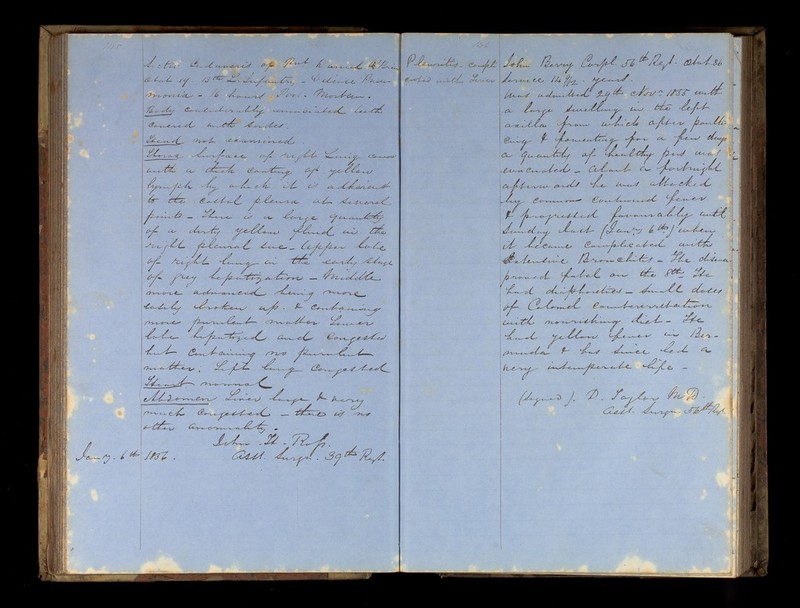 Body considerably emaciated teeth
covered with sordes.
Head not examined.
Thorax Surface of right Lung
with a thick coating of yellow
lymph by which it is adherent
to the costal pleura at several
points - There is a large quantity
of a dirty yellow fluid in the
right pleural sac - Upper lobe
of right lung in the early stage
of grey hepatization - Middle
more advanced being more
easily broken up. & containing
more purulent matter Lower
lobe hepatized and congested
but containing no purulent
matter. Left lung Congested
Heart normal
Abdomen Liver large & very
much congested - there is no
other anormality.
John H. Ross.
Jany. 6th 1856. Asst. Surgn. 39th Regt.
Pleuritis. compli
cated with Fever
John Berry Corpl 56th Regt. Ætat 36
Service 14 years.
Was admitted 29th Novr. 1855 with
a large swelling in the left
axilla from which after poulti
cing & fomenting for a few days
a quantity of healthy pus was
evacuated - about a fortnight
afterwards he was attacked
by common continued fever
& progressed favourably until
Sunday last (Jany. 6th) when
it became complicated with
Extensive Bronchitis - The disease
proved fatal on the 8th. He
had - small doses
of Calomel counterirritation
with nourishing diet - He
had yellow fever in Ber-
muda & has since led a
very intemperate life -
(Signed). D. Taylor MD
Asst. Surgn 56th Regt.